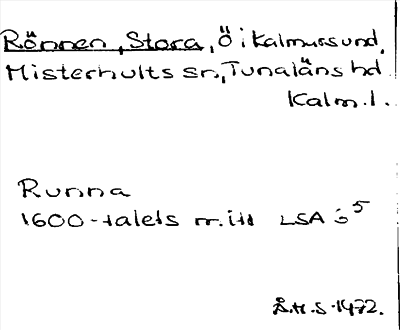 Rönnen, Stora, ö i Kalmarsund,
Misterhults sn, Tunaläns hd
Kalm. l.
Runna
1600-talets mitt LSA ö⁵
Å.H.S. 1972.